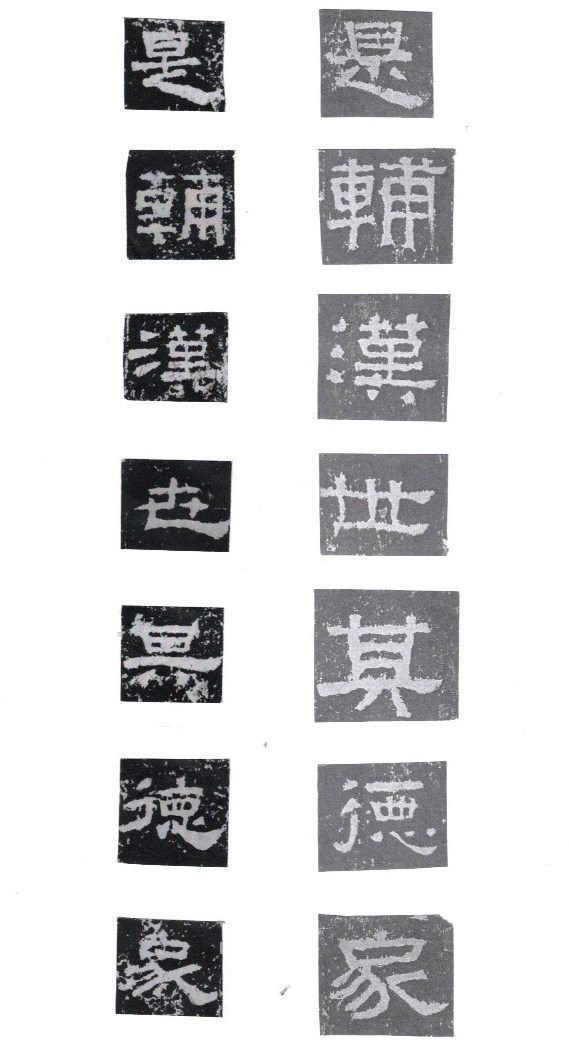 是 是
輔 輔
漢 漢
世 世
其 其
德 德
象 象